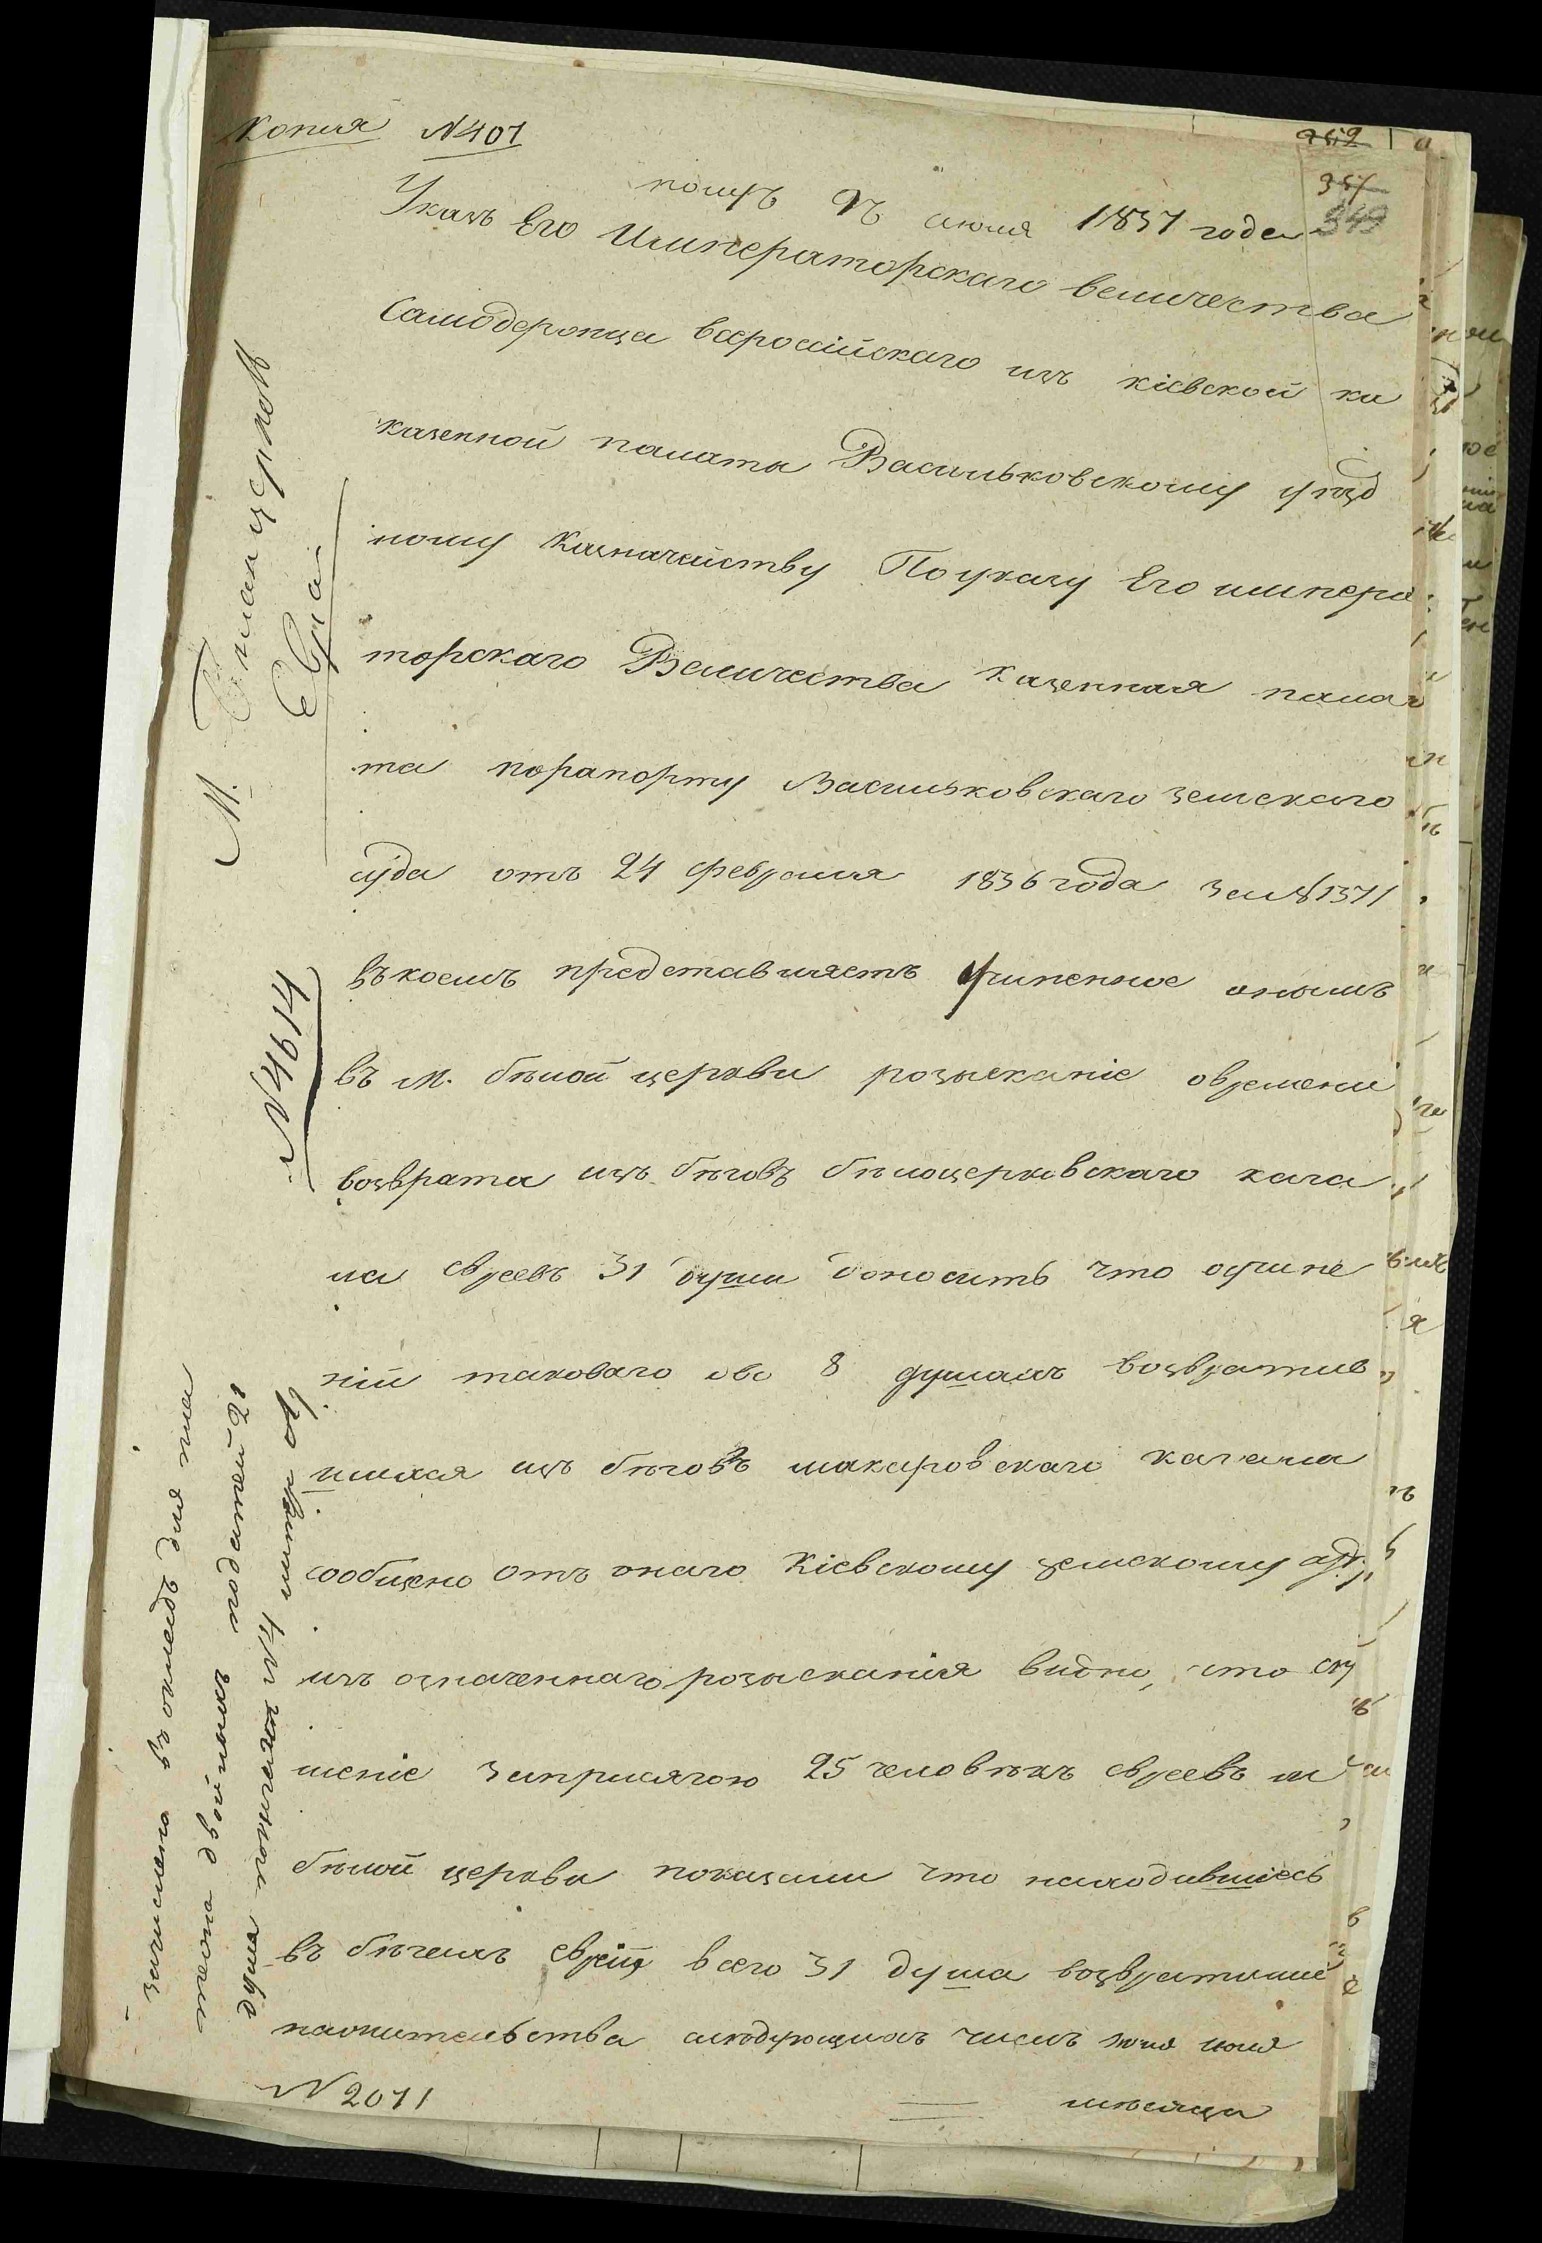 Копия N 401
352
357
349
получ 9ъ июля 1837 года
Указъ Его Императорскаго величества
Самодержца всеросійскаго изъ кіевской ка
казенной палаты Васильковскому уѣзд
ному Казначейству Поуказу Его импера
торскаго Величества казенная пала
та порапорту Васильковскаго земскаго
суда отъ 24 февраля 1836 года за N 1371
въкоемъ представляетъ учиненное онымъ
въ м. бѣлой церкви розысканіе овремени
возврата изъ бѣговъ бѣлоцерковскаго кага
ла евреевъ 31 души доноситъ что оучине
ніи таковаго обо 8 душахъ возвратив
шихся изъ бѣговъ макаровскаго кагала
сообщено отъ онаго Кіевскому земскому суду
изъ означеннаго розысканія видно, что
шеніе заприсягою 25 человѣкъ евреевъ м
бѣлой церкви показали что находившіесь
въ бѣгахъ еврей всего 31 душа возвратились
нажительства слѣдующихъ числъ июля
мѣсяца
N 2071
М. Бѣлая церковь
Евреи
N 4914
зачислено въ окладъ для пла
тежа двойныхъ податей 12
душъ